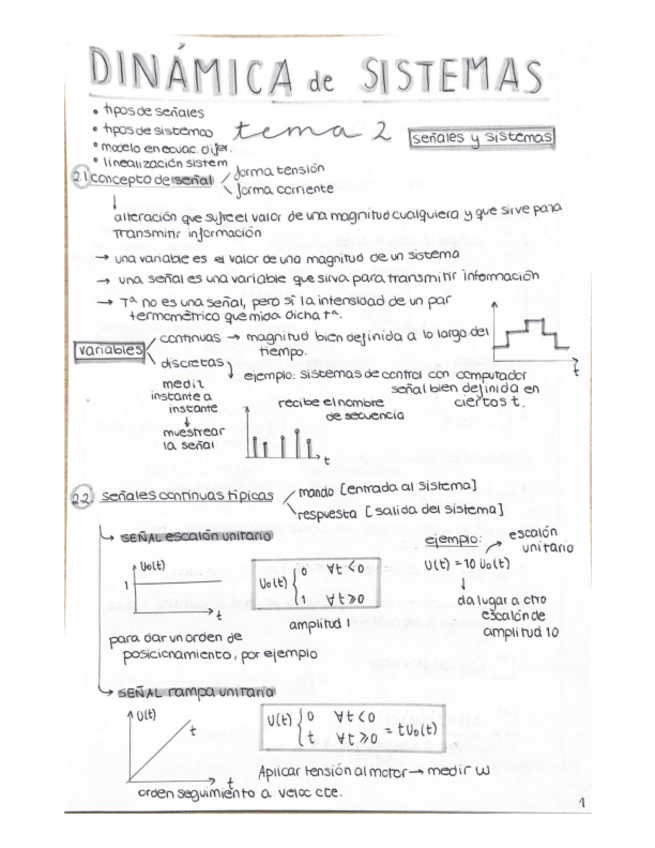 DINÁMICA de SISTEMAS
• tipos de señales
• tipos de sistemas
• modelo en ecuac. difer.
• linealización sistem
tema 2
señales y sistemas
2.1 concepto de señal
forma tensión
forma corriente
alteración que sufre el valor de una magnitud cualquiera y que sirve para
transmitir información
→ una variable es el valor de una magnitud de un sistema
→ una señal es una variable que sirva para transmitir información
→ Tª no es una señal, pero si la intensidad de un par
termométrico que mida dicha tª.
variables
continuas → magnitud bien definida a lo largo del
tiempo.
t
discretas
ejemplo: sistemas de control con computador
señal bien definida en
ciertos t.
medir
instante a
instante
↓
muestrear
la señal
recibe el nombre
de secuencia
t
2.2 señales continuas típicas
mando [entrada al sistema]
respuesta [salida del sistema]
SEÑAL escalón unitario
U₀(t)
1
t
U₀(t) { 0 ∀t<0
1 ∀t≥0
amplitud 1
para dar un orden de
posicionamiento, por ejemplo
ejemplo:
escalón
unitario
U(t) = 10 U₀(t)
↓
da lugar a otro
escalón de
amplitud 10
SEÑAL rampa unitaria
U(t)
t
t
U(t) { 0 ∀t<0
t ∀t≥0 = t U₀(t)
Aplicar tensión al motor → medir ω
orden seguimiento a veloc cte.
1